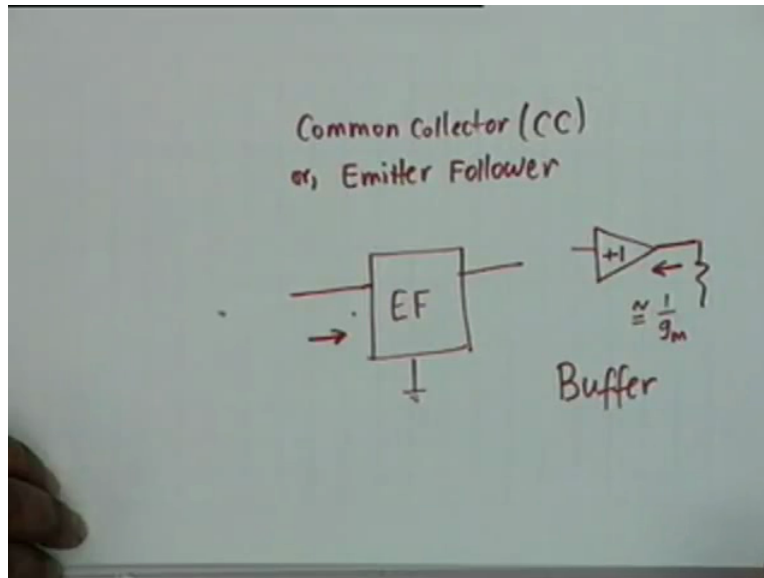 Common Collector (CC)
or, Emitter Follower
EF
+1
≅ 1/gm
Buffer